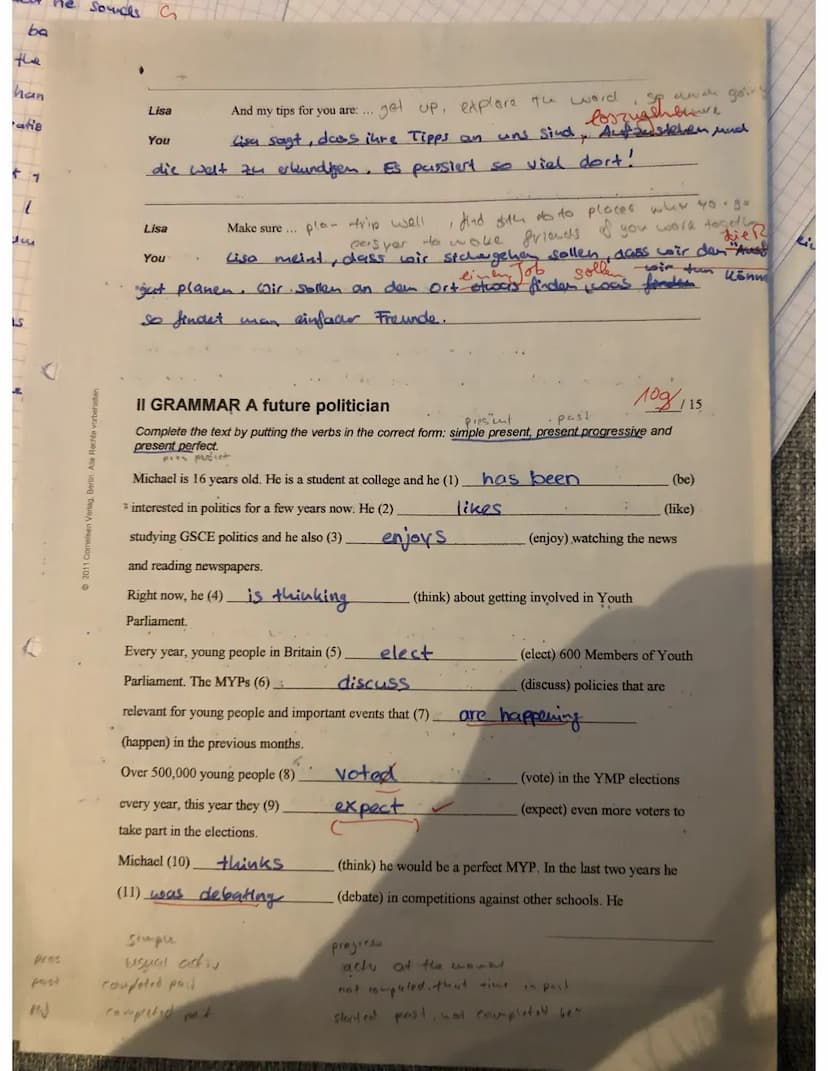 he sounds
ba
the
han
Lisa And my tips for you are: ... get up, explore the word, so much going
loszugehen
You Lisa sagt, dass ihre Tipps an uns sind, Aufzustehen und
die Welt zu erkundigen. Es passiert so viel dort!
Lisa Make sure ... plan trip well, find places
to make friends if you work together
You Lisa meint, dass wir sichergehen sollen, dass wir den
einen Job sollen wir tun könn
gut planen. Wir sollen an dem Ort etwas finden, was
so findet man einfacher Freunde.
II GRAMMAR A future politician 10 / 15
present past
Complete the text by putting the verbs in the correct form: simple present, present progressive and
present perfect.
Michael is 16 years old. He is a student at college and he (1) has been (be)
interested in politics for a few years now. He (2) likes (like)
studying GSCE politics and he also (3) enjoys (enjoy) watching the news
and reading newspapers.
Right now, he (4) is thinking (think) about getting involved in Youth
Parliament.
Every year, young people in Britain (5) elect (elect) 600 Members of Youth
Parliament. The MYPs (6) discuss (discuss) policies that are
relevant for young people and important events that (7) are happening
(happen) in the previous months.
Over 500,000 young people (8) voted (vote) in the YMP elections
every year, this year they (9) expect (expect) even more voters to
take part in the elections.
Michael (10) thinks (think) he would be a perfect MYP. In the last two years he
(11) was debating (debate) in competitions against other schools. He
simple progress
pres usual activ activ at the moment
past completed past not completed that time in past
completed past started past, not completed
© 2011 Cornelsen Verlag, Berlin. Alle Rechte vorbehalten